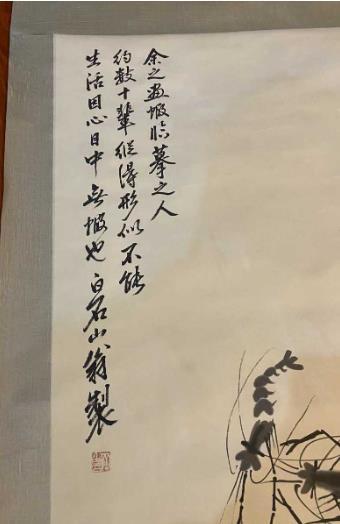 余之画虾临摹之人
约数十辈纵得形似不能
生活因心目中无虾也白石山翁制